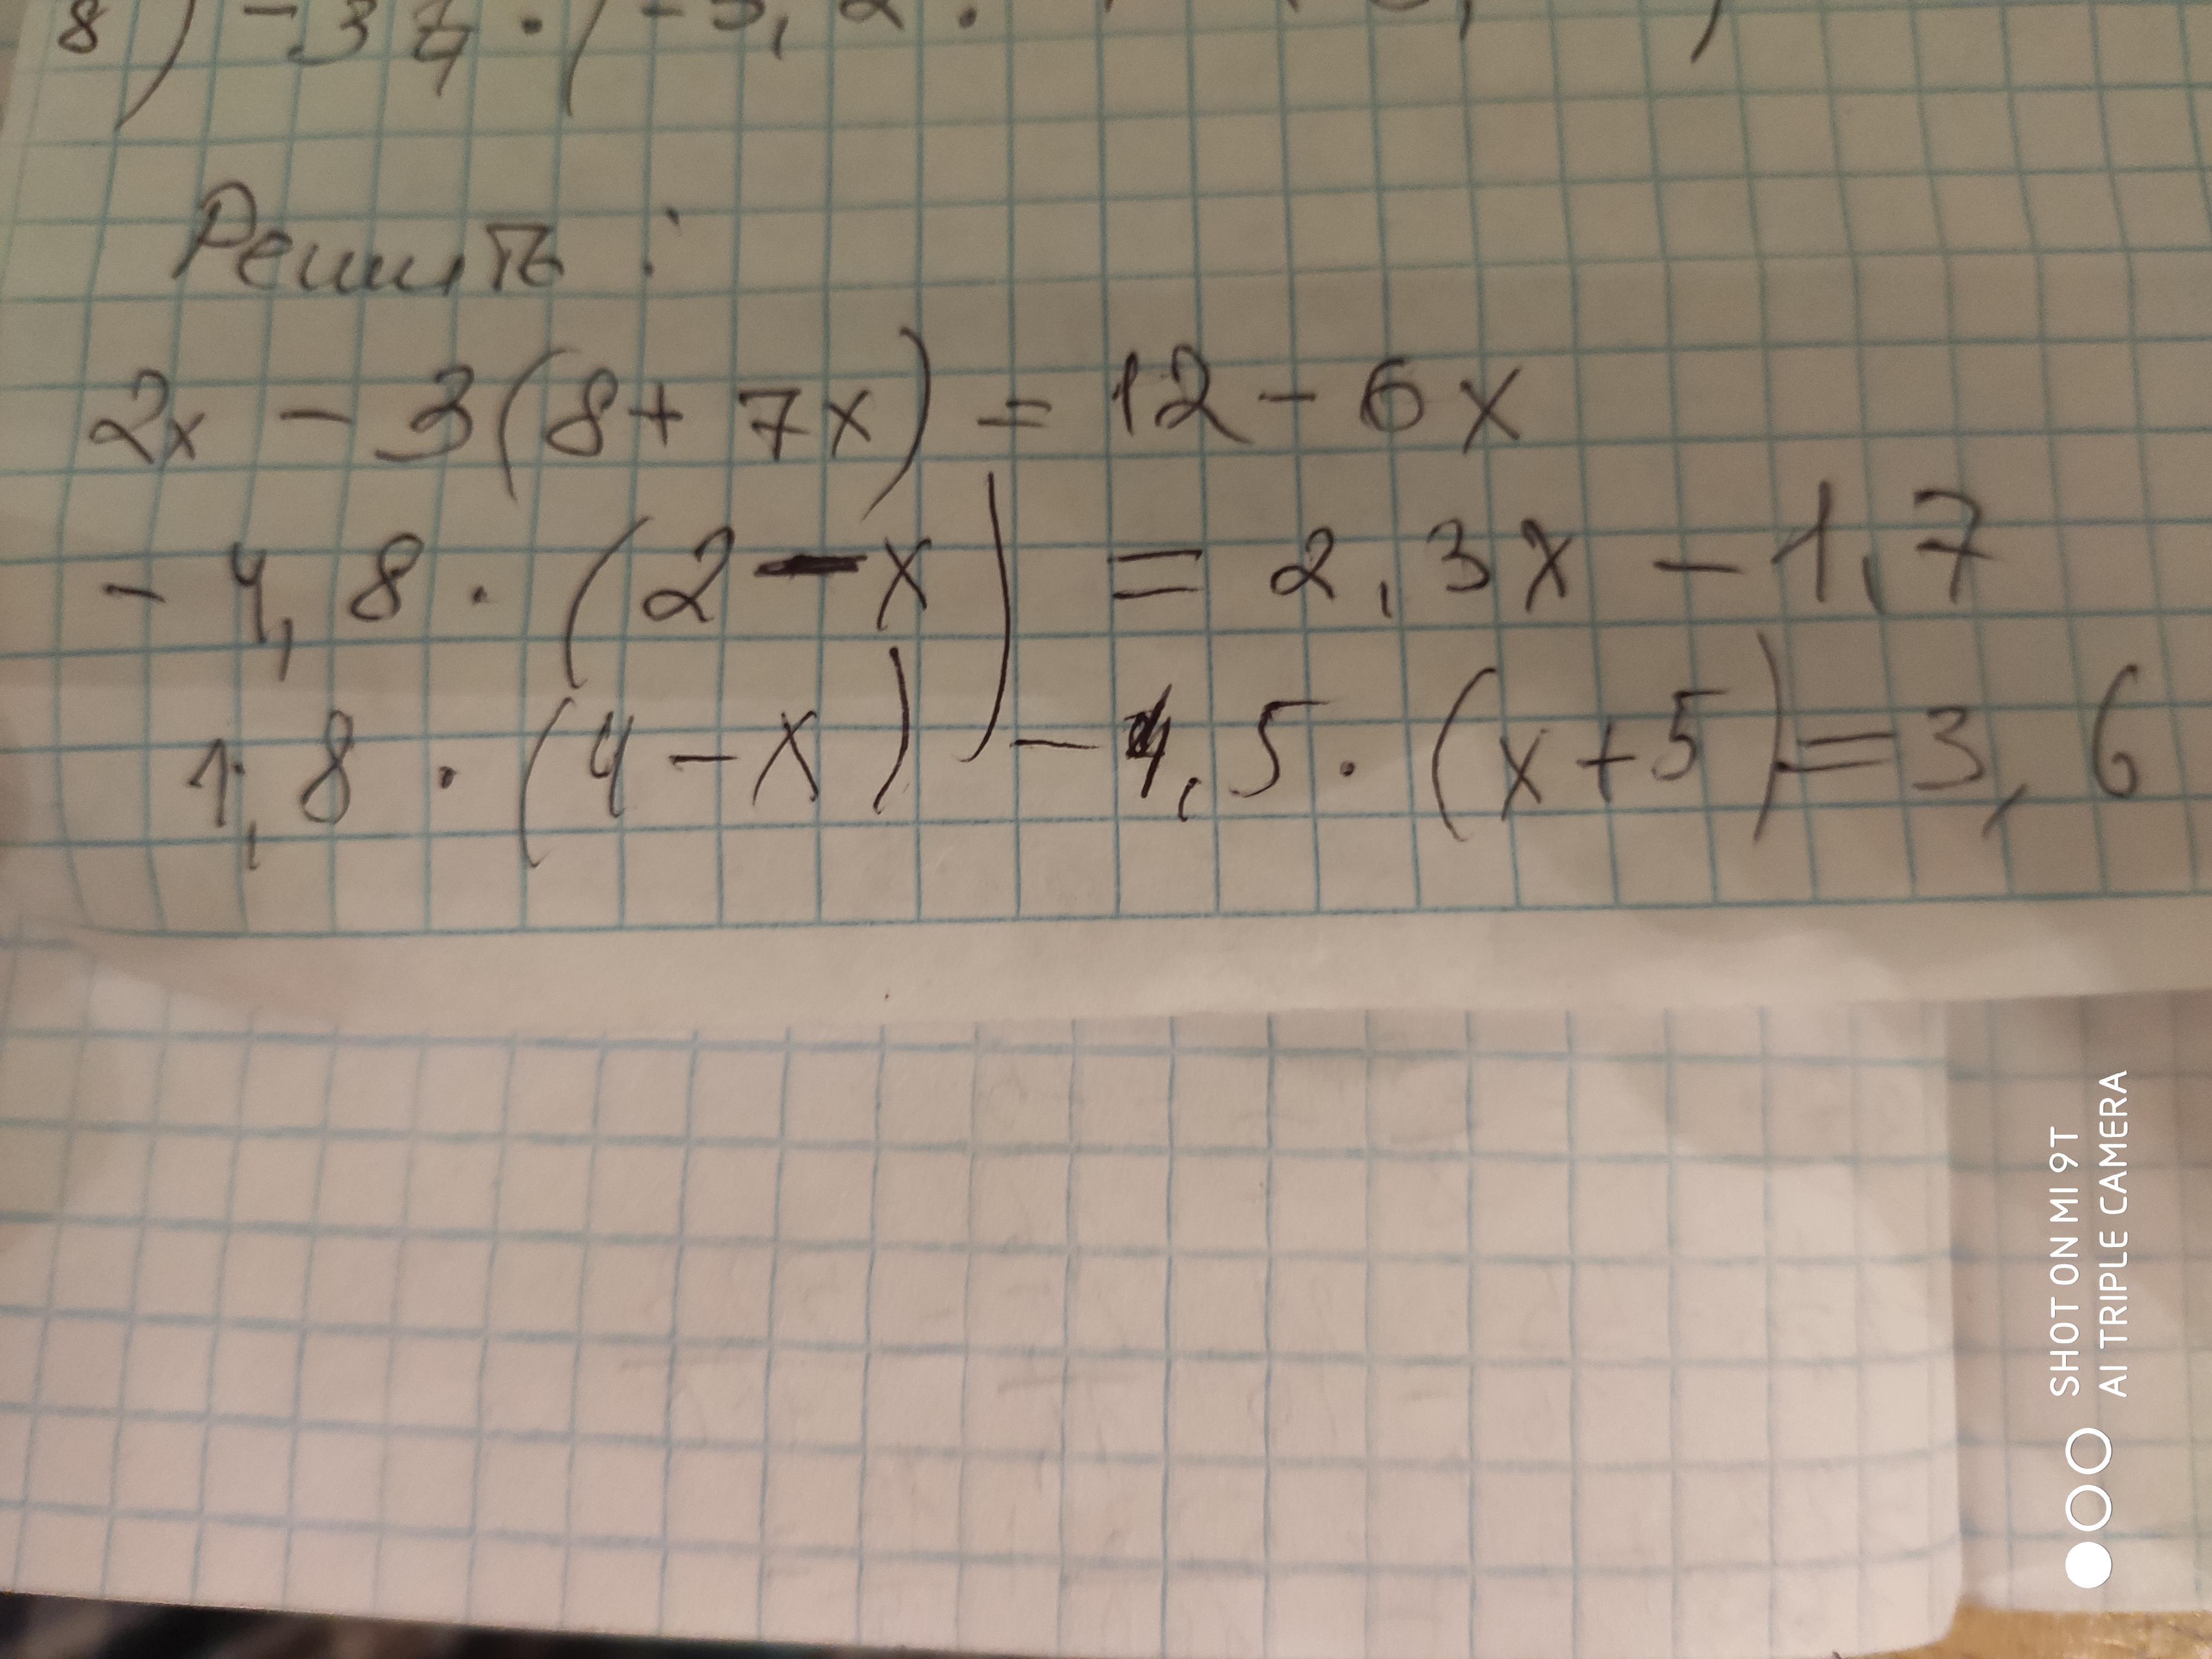 8) -3
Решить:
2x - 3(8 + 7x) = 12 - 6x
- 4,8 · (2 - x) = 2,3x - 1,7
1,8 · (4 - x) - 4,5 · (x + 5) = 3,6
SHOT ON MI 9T
AI TRIPLE CAMERA